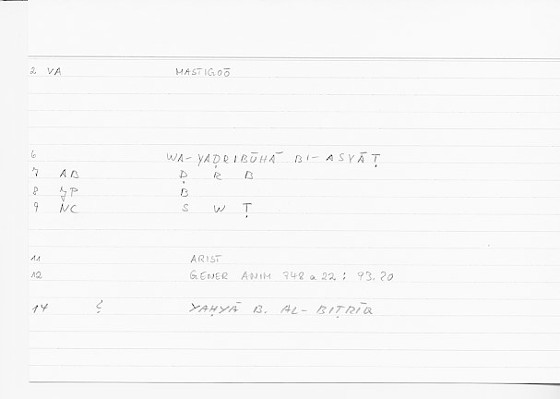 2 VA MASTIGOŌ
6 WA-YAḌRIBŪHĀ BI-ASYĀṬ
7 AB Ḍ R B
8 JP B
9 NC S W Ṭ
11 ARIST
12 GENER ANIM 748 a 22 : 93.20
14 YAḤYĀ B. AL-BIṬRĪQ